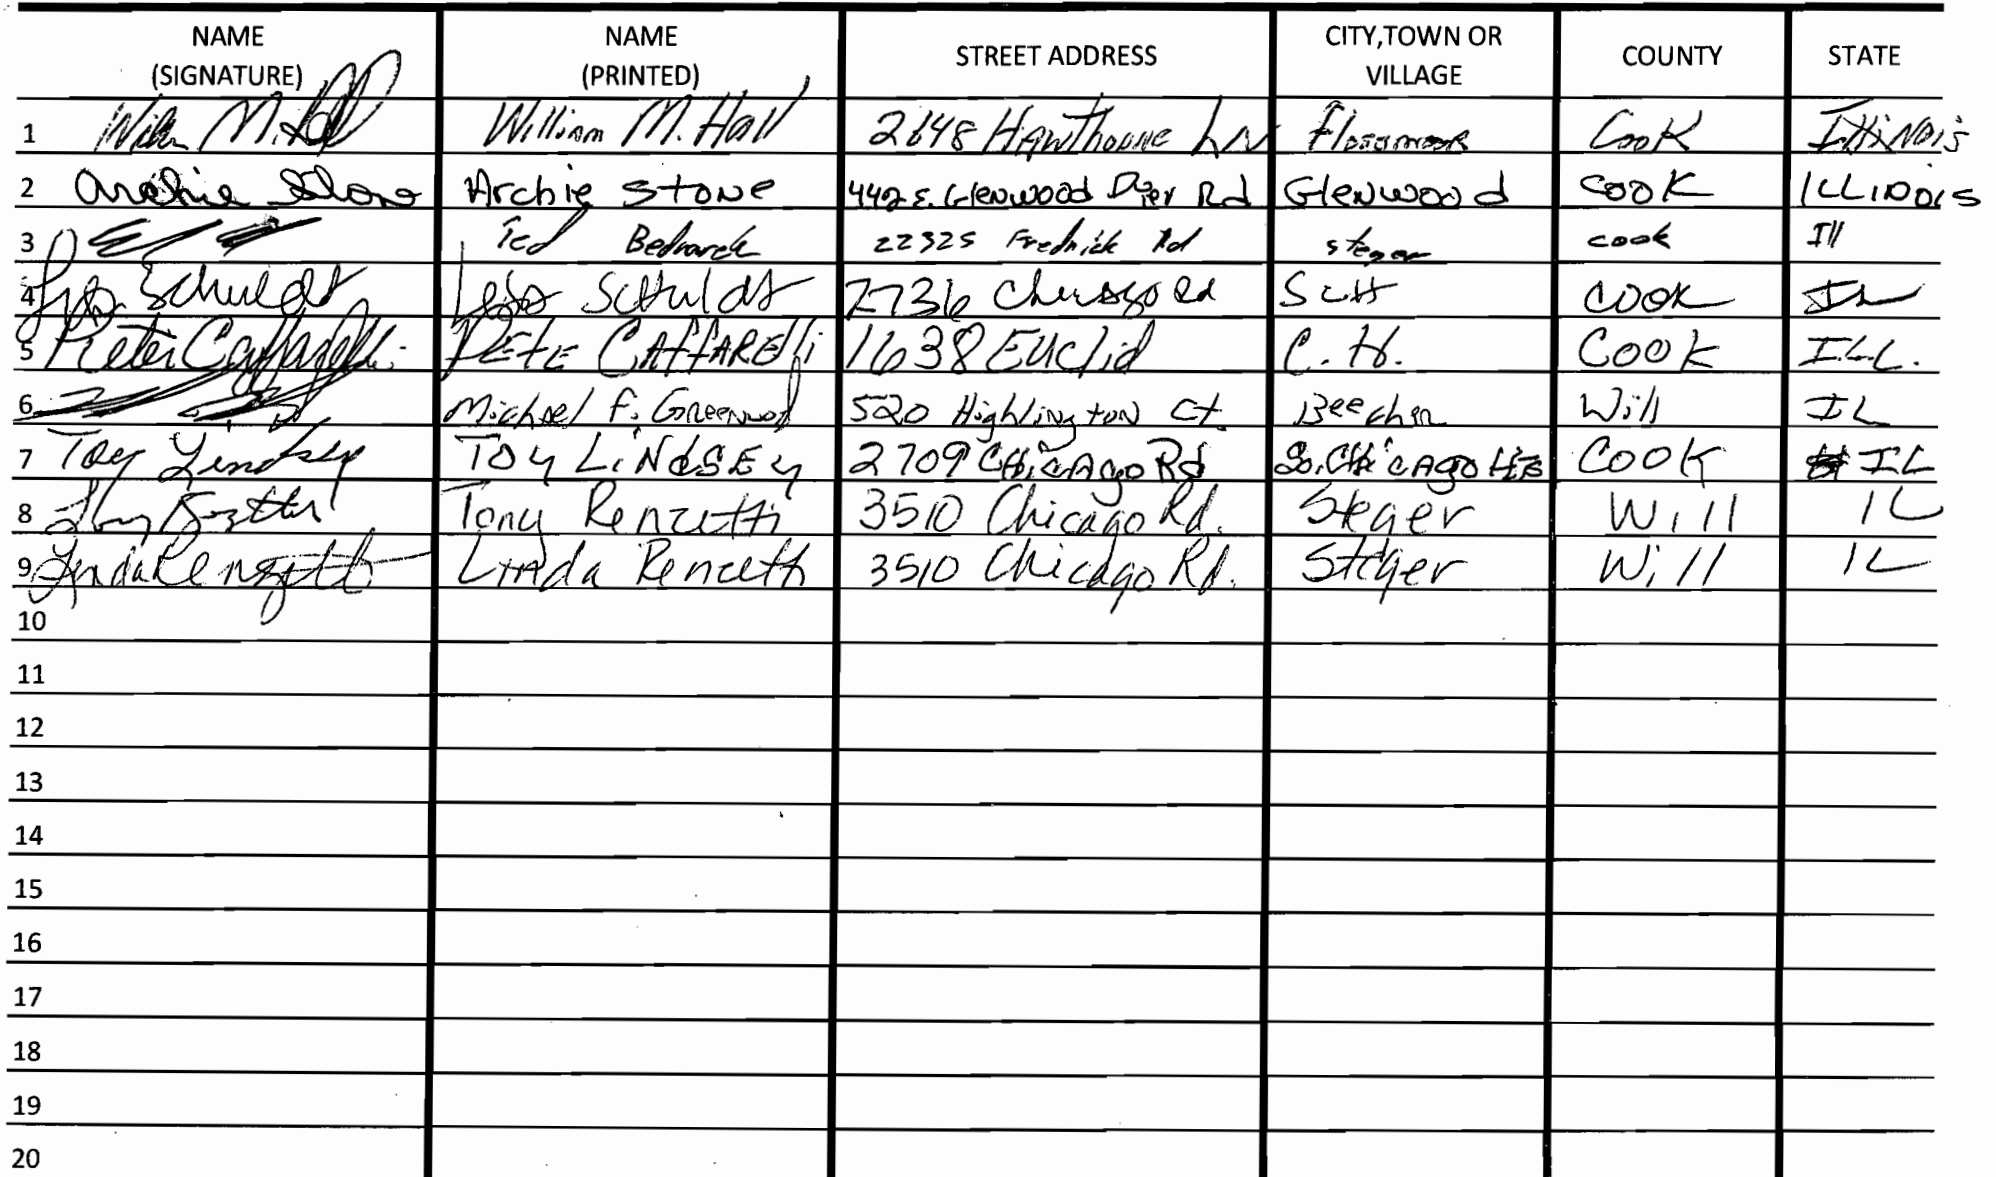 NAME (SIGNATURE) NAME (PRINTED) STREET ADDRESS CITY,TOWN OR VILLAGE COUNTY STATE
1 William M. Hall 2648 Hawthorne LN Flossmoor Cook Illinois
2 Archie Stone Archie Stone 442 E. Glenwood Dyer Rd Glenwood Cook ILLINOIS
3 Ted 22325 Fredrick Rd Steger cook Ill
4 Schuldt Schuldt 2736 Chicago Rd SCH Cook IL
5 Peter Caffarelli PETE CAFFARElli 1638 Euclid C. H. Cook ILL.
6 Michael F. Greenwood 520 Highlington Ct. Beecher Will IL
7 Toy Lindsey TOY LiNdSEy 2709 CHiCAgo Rd So. CHiCAgo HTS COOK IL
8 Tony Renzetti 3510 Chicago Rd. Steger Will IL
9 Linda Renzetti Linda Renzetti 3510 Chicago Rd. Steger Will IL
10
11
12
13
14
15
16
17
18
19
20